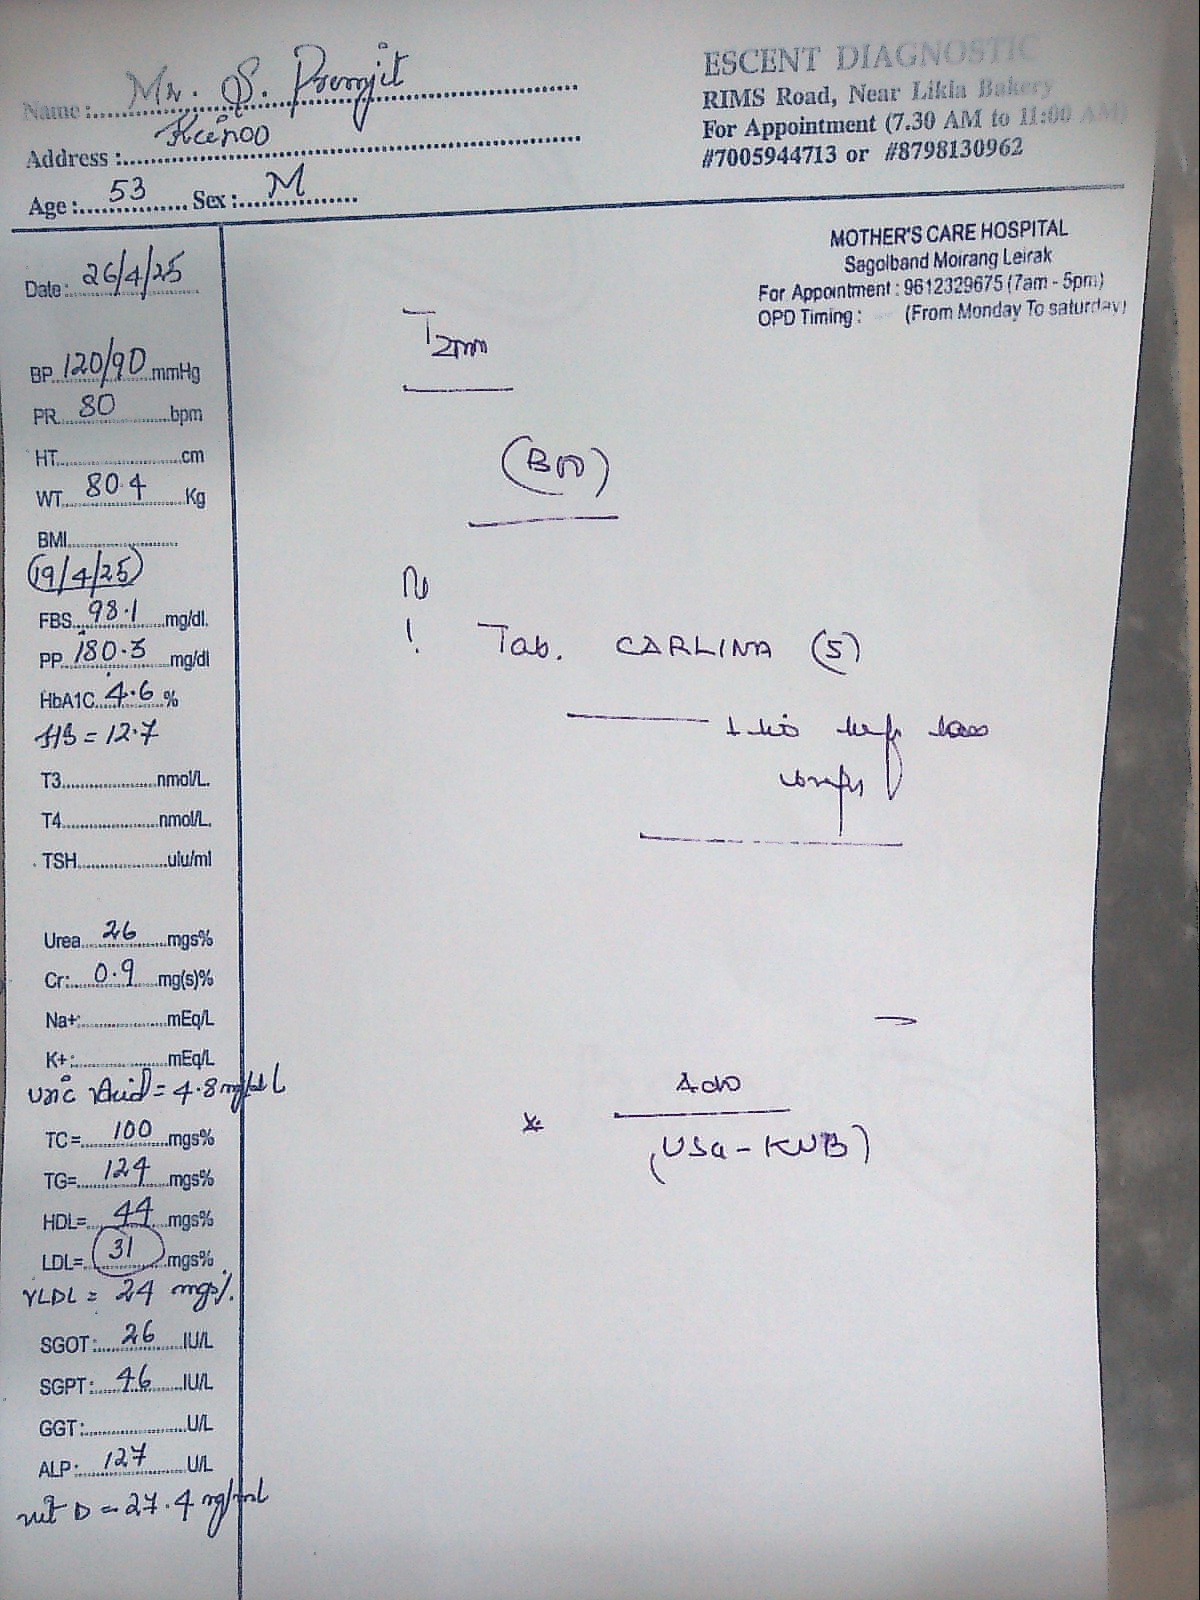 Name: Mr. S. Premjit
Address: Keinoo
Age: 53 Sex: M
ESCENT DIAGNOSTIC
RIMS Road, Near Likla Bakery
For Appointment (7.30 AM to 11:00 AM)
#7005944713 or #8798130962
MOTHER'S CARE HOSPITAL
Sagolband Moirang Leirak
For Appointment : 9612329675 (7am - 5pm)
OPD Timing : (From Monday To saturday)
Date: 26/4/25
BP 120/90 mmHg
PR. 80 bpm
HT. cm
WT. 80.4 Kg
BMI
(19/4/25)
FBS 98.1 mg/dl.
PP 180.3 mg/dl
HbA1C 4.6 %
HB = 12.7
T3 nmol/L.
T4 nmol/L.
TSH ulu/ml
Urea 26 mgs%
Cr: 0.9 mg(s)%
Na+: mEq/L
K+: mEq/L
Uric Acid = 4.8 mg/dL
TC= 100 mgs%
TG= 124 mgs%
HDL= 44 mgs%
LDL= 31 mgs%
VLDL = 24 mgs%
SGOT: 26 IU/L
SGPT: 46 IU/L
GGT: U/L
ALP: 127 U/L
vit D = 27.4 ng/ml
T2DM
Tab. CARLINA (5)
(USG - KUB)